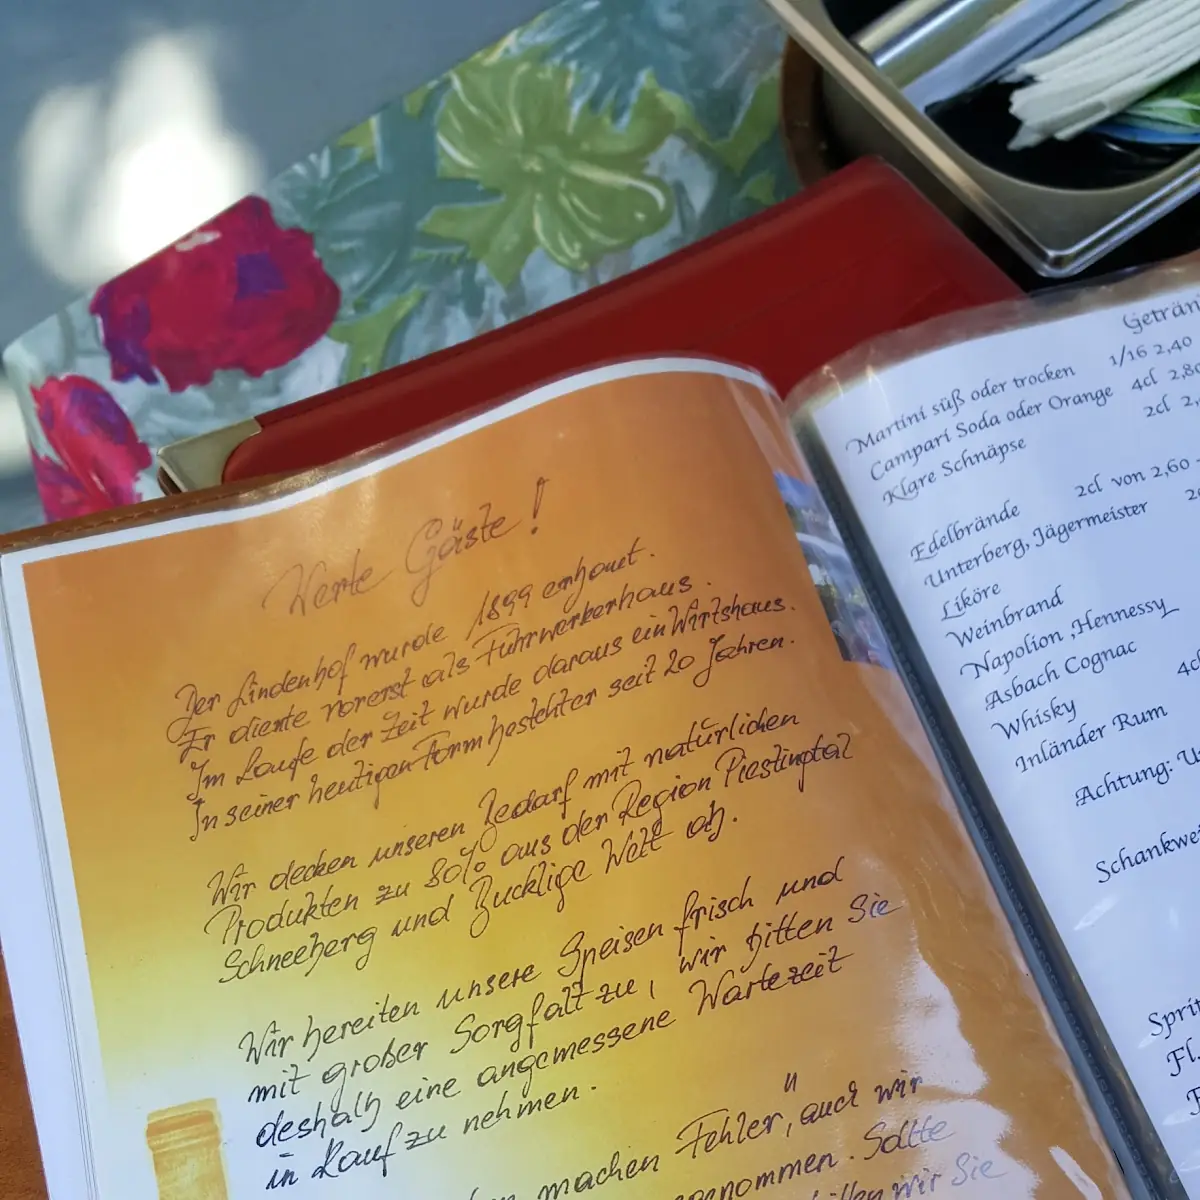 Werte Gäste!
Der Lindenhof wurde 1899 erbaut.
Er diente vorerst als Fuhrwerkerhaus.
Im Laufe der Zeit wurde daraus ein Wirtshaus.
In seiner heutigen Form besteht er seit 20 Jahren.
Wir decken unseren Bedarf mit natürlichen
Produkten zu 80% aus der Region Piestingtal
Schneeberg und Bucklige Welt ab.
Wir bereiten unsere Speisen frisch und
mit großer Sorgfalt zu, wir bitten Sie
deshalb eine angemessene Wartezeit
in Kauf zu nehmen.
machen Fehler", auch wir
genommen. Sollte
wir Sie
Geträn
Martini süß oder trocken 1/16 2,40
Campari Soda oder Orange 4cl 2,80
Klare Schnäpse 2cl 2,
Edelbrände 2cl von 2,60 -
Unterberg, Jägermeister 2
Liköre
Weinbrand
Napolion ,Hennessy
Asbach Cognac
Whisky 4cl
Inländer Rum
Achtung: U
Schankwei
Sprit
Fl.
F